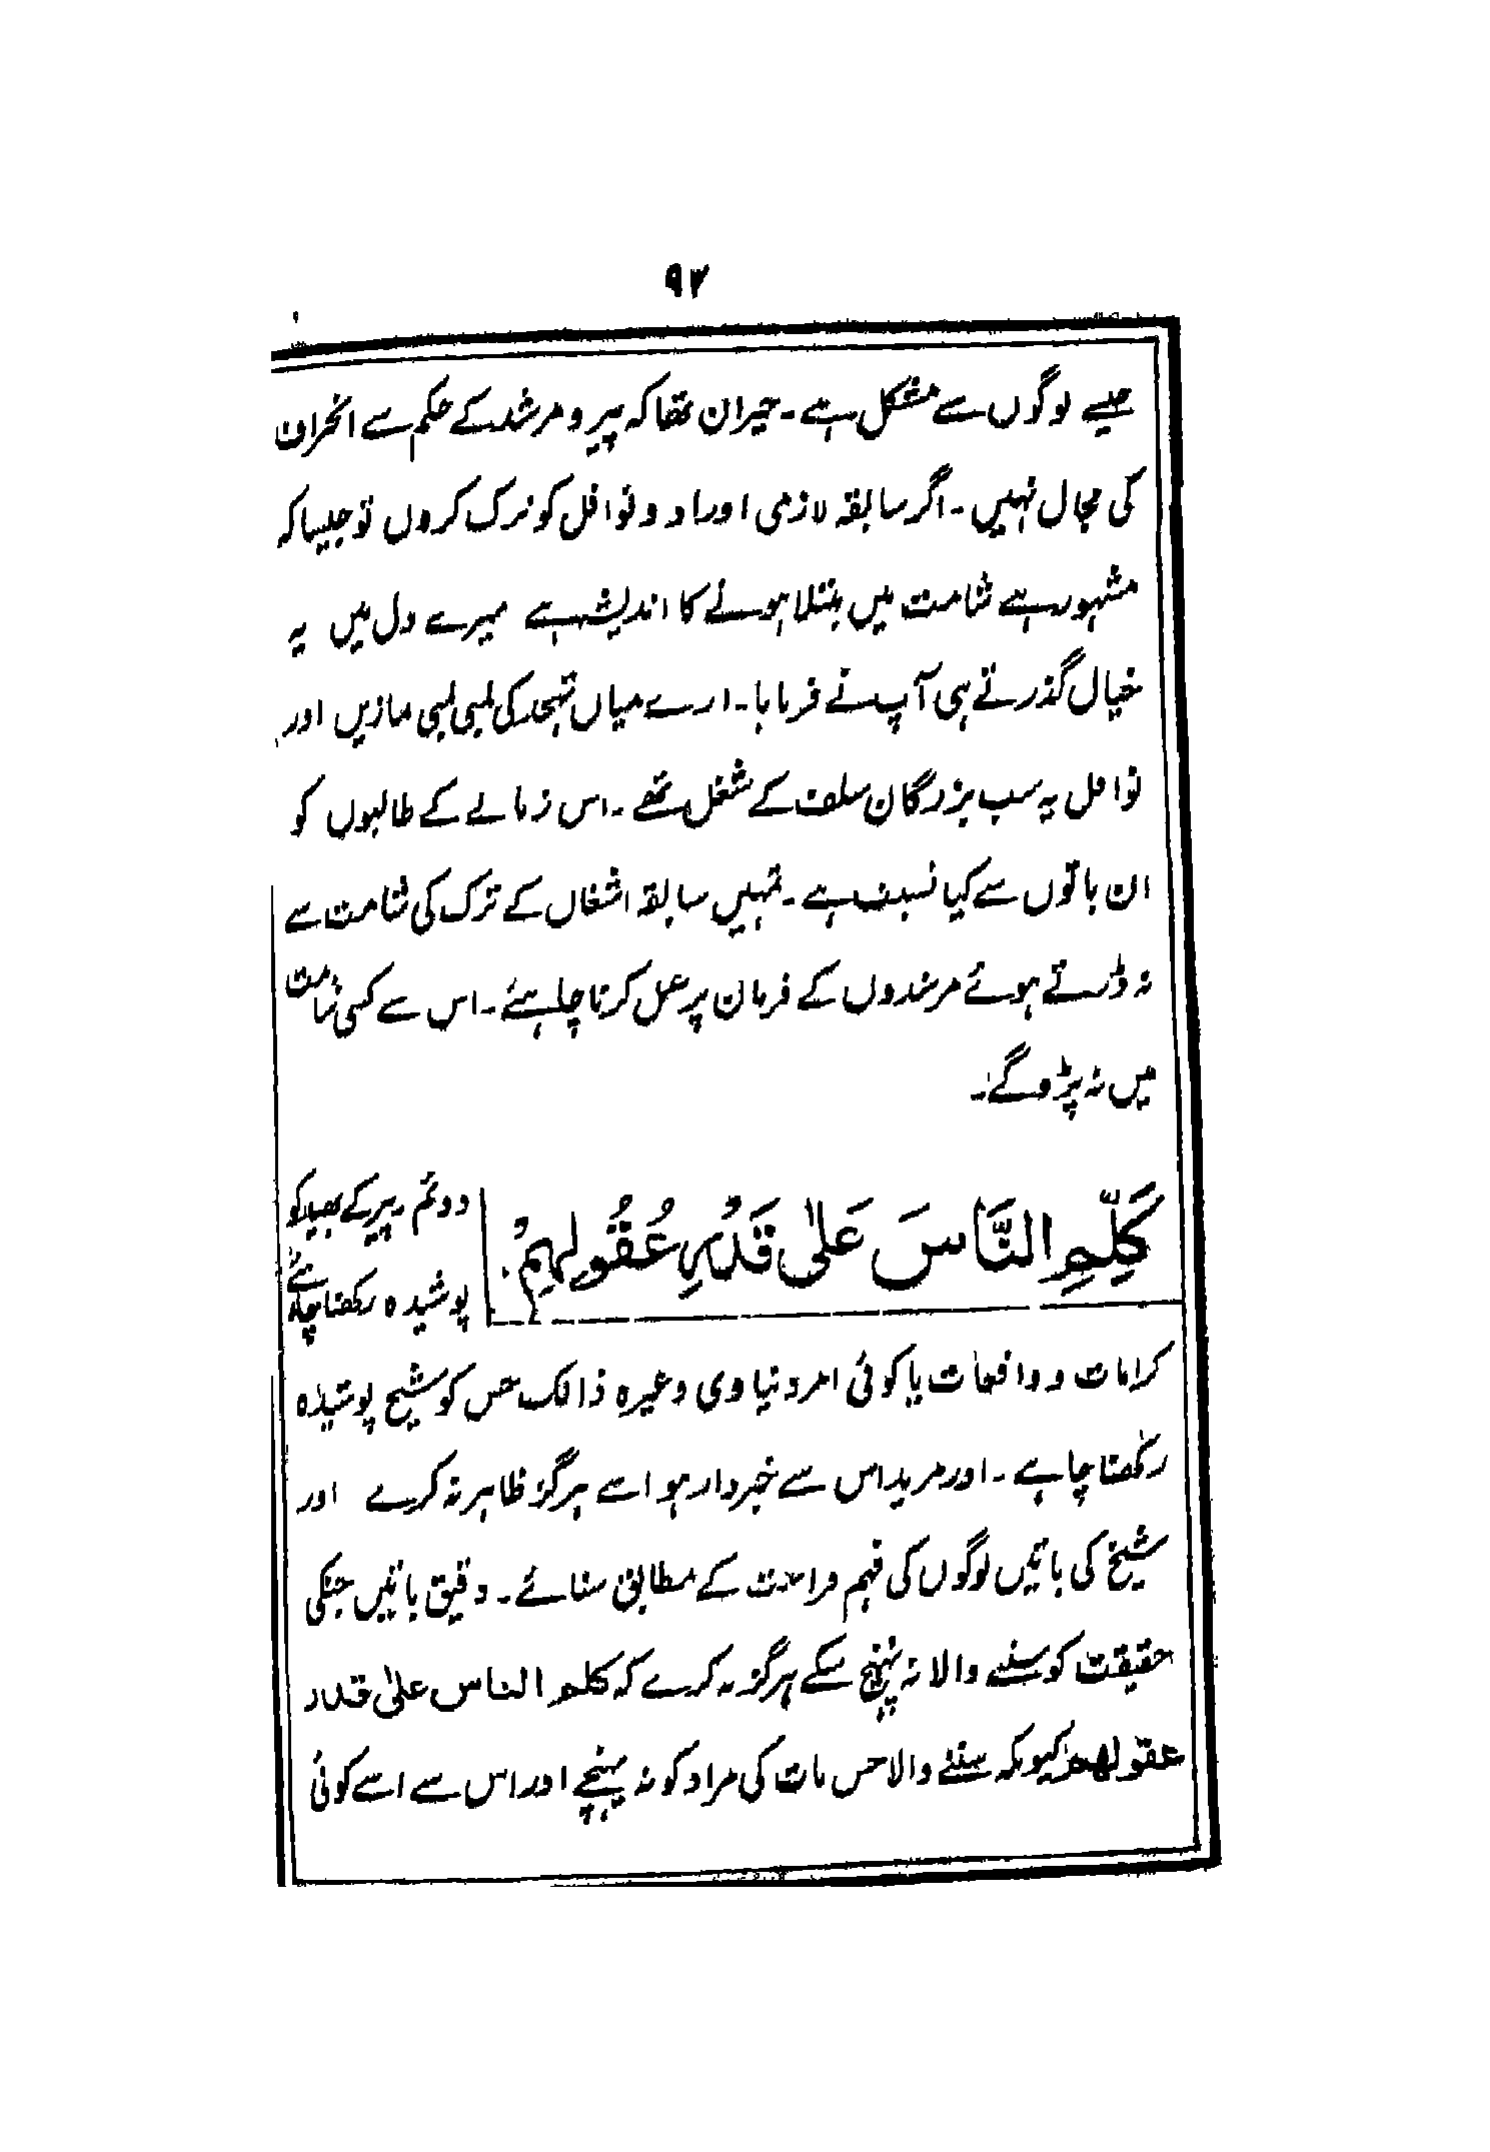 ۹۲
جیسے لوگوں سے مشکل ہے۔ حیران تھا کہ پیر و مرشد کے حکم سے انحراف
کی مجال نہیں۔ اگر سابقہ لازمی اوراد و نوافل کو ترک کروں تو جیسا کہ
مشہور ہے شامت میں مبتلا ہونے کا اندیشہ ہے میرے دل میں یہ
خیال گذرتے ہی آپ نے فرمایا۔ ارے میاں تہجد کی لمبی لمبی نمازیں اور
نوافل یہ سب بزرگان سلف کے شغل تھے۔ اس زمانے کے طالبوں کو
ان باتوں سے کیا نسبت ہے۔ تمہیں سابقہ اشغال کے ترک کی شامت سے
نہ ڈرتے ہوئے مرشدوں کے فرمان پر عمل کرنا چاہئے۔ اس سے کسی شامت
میں نہ پڑو گے۔
كَلِّمِ النَّاسَ عَلٰى قَدْرِ عُقُولِهِمْ۔
دوئم۔ پیر کے بھید کو
پوشیدہ رکھنا چاہئے
کرامات و واقعات یا کوئی امر دنیاوی وغیرہ ذالک جس کو شیخ پوشیدہ
رکھنا چاہے۔ اور مرید اس سے خبردار ہو اسے ہرگز ظاہر نہ کرے اور
شیخ کی باتیں لوگوں کی فہم و فراست کے مطابق سنائے۔ دقیق باتیں جنکی
حقیقت کو سننے والا نہ پہنچ سکے ہرگز نہ کرے کہ کلم الناس علیٰ قدر
عقولھم کیونکہ سننے والا جس بات کی مراد کو نہ پہنچے اور اس سے اسے کوئی